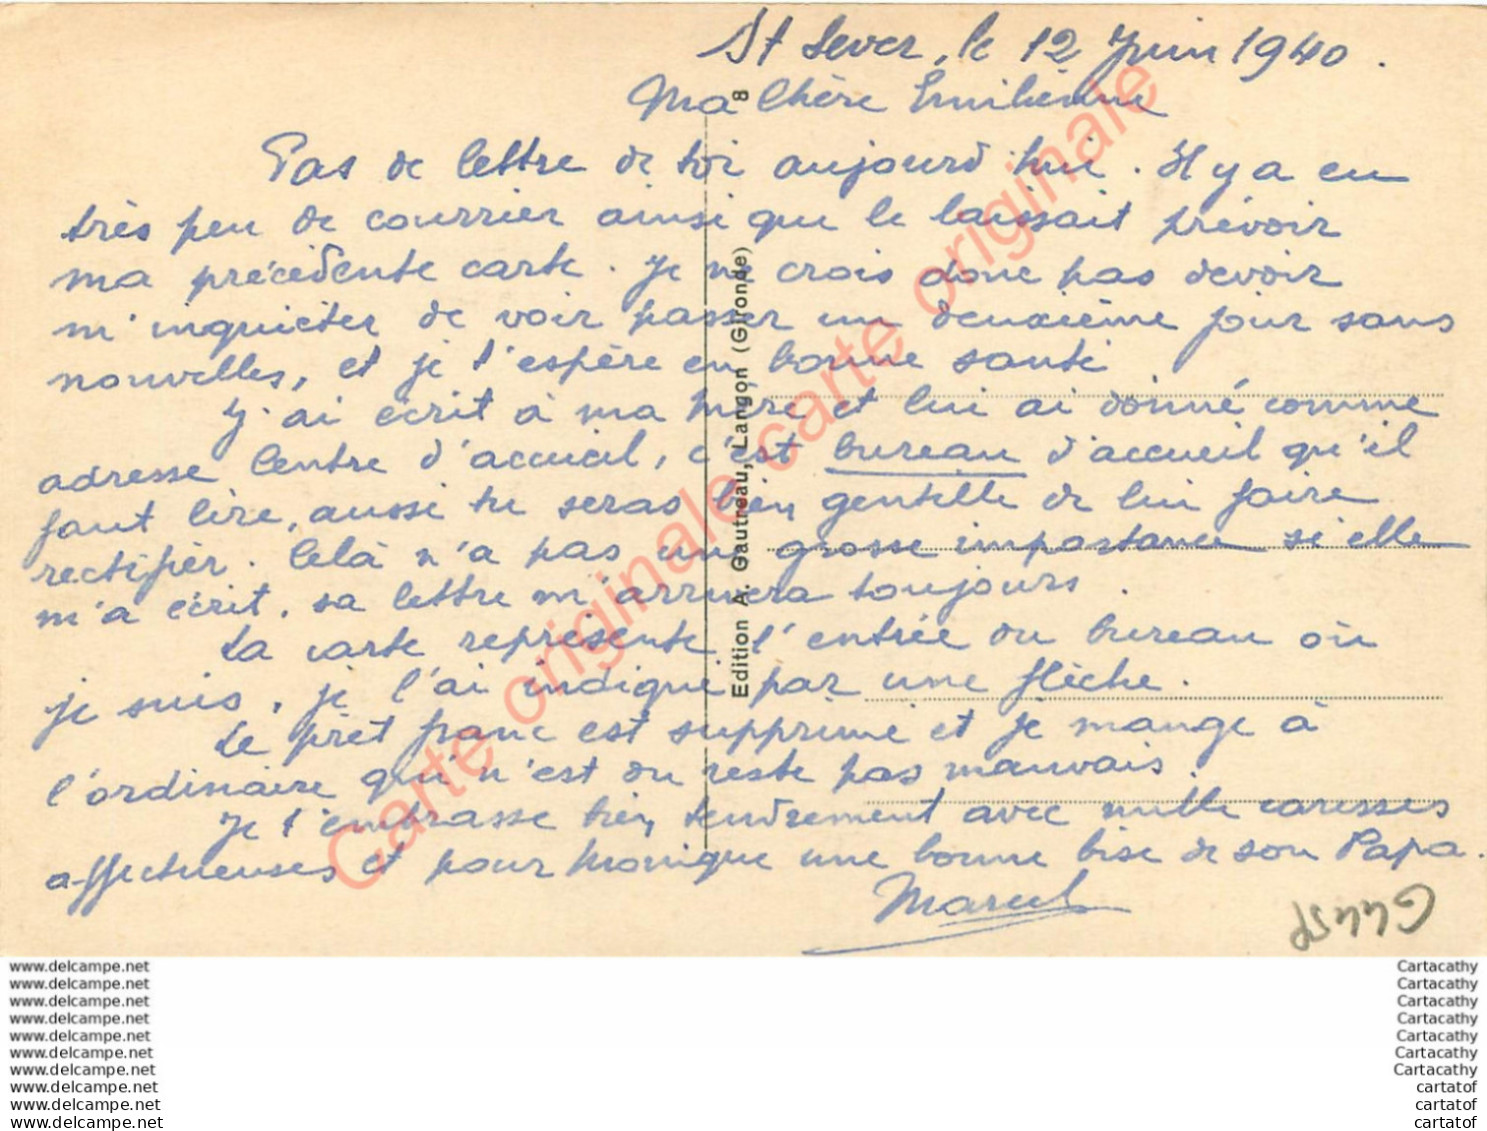 St Sever, le 12 Juin 1940.
Ma Chère Emilienne
Pas de lettre de toi aujourd'hui. Il y a eu
très peu de courrier ainsi que le laissait prévoir
ma précédente carte. Je ne crois donc pas devoir
m'inquiéter de voir passer un deuxième jour sans
nouvelles, et je t'espère en bonne santé
J'ai écrit à ma mère et lui ai donné comme
adresse Centre d'accueil, c'est bureau d'accueil qu'il
faut lire, aussi tu seras bien gentille de lui faire
rectifier. Celà n'a pas une grosse importance si elle
m'a écrit, sa lettre m'arrivera toujours.
La carte représente l'entrée du bureau où
je suis, je l'ai indiqué par une flèche.
Le prêt franc est supprimé et je mange à
l'ordinaire qui n'est du reste pas mauvais.
Je t'embrasse bien tendrement avec mille caresses
affectueuses et pour Monique une bonne bise de son Papa.
Marcel
8
Edition A. Gautreau, Langon (Gironde)
Carte originale carte originale
G44SP
www.delcampe.net
www.delcampe.net
www.delcampe.net
www.delcampe.net
www.delcampe.net
www.delcampe.net
www.delcampe.net
www.delcampe.net
www.delcampe.net
www.delcampe.net
Cartacathy
Cartacathy
Cartacathy
Cartacathy
Cartacathy
Cartacathy
Cartacathy
cartatof
cartatof
cartatof